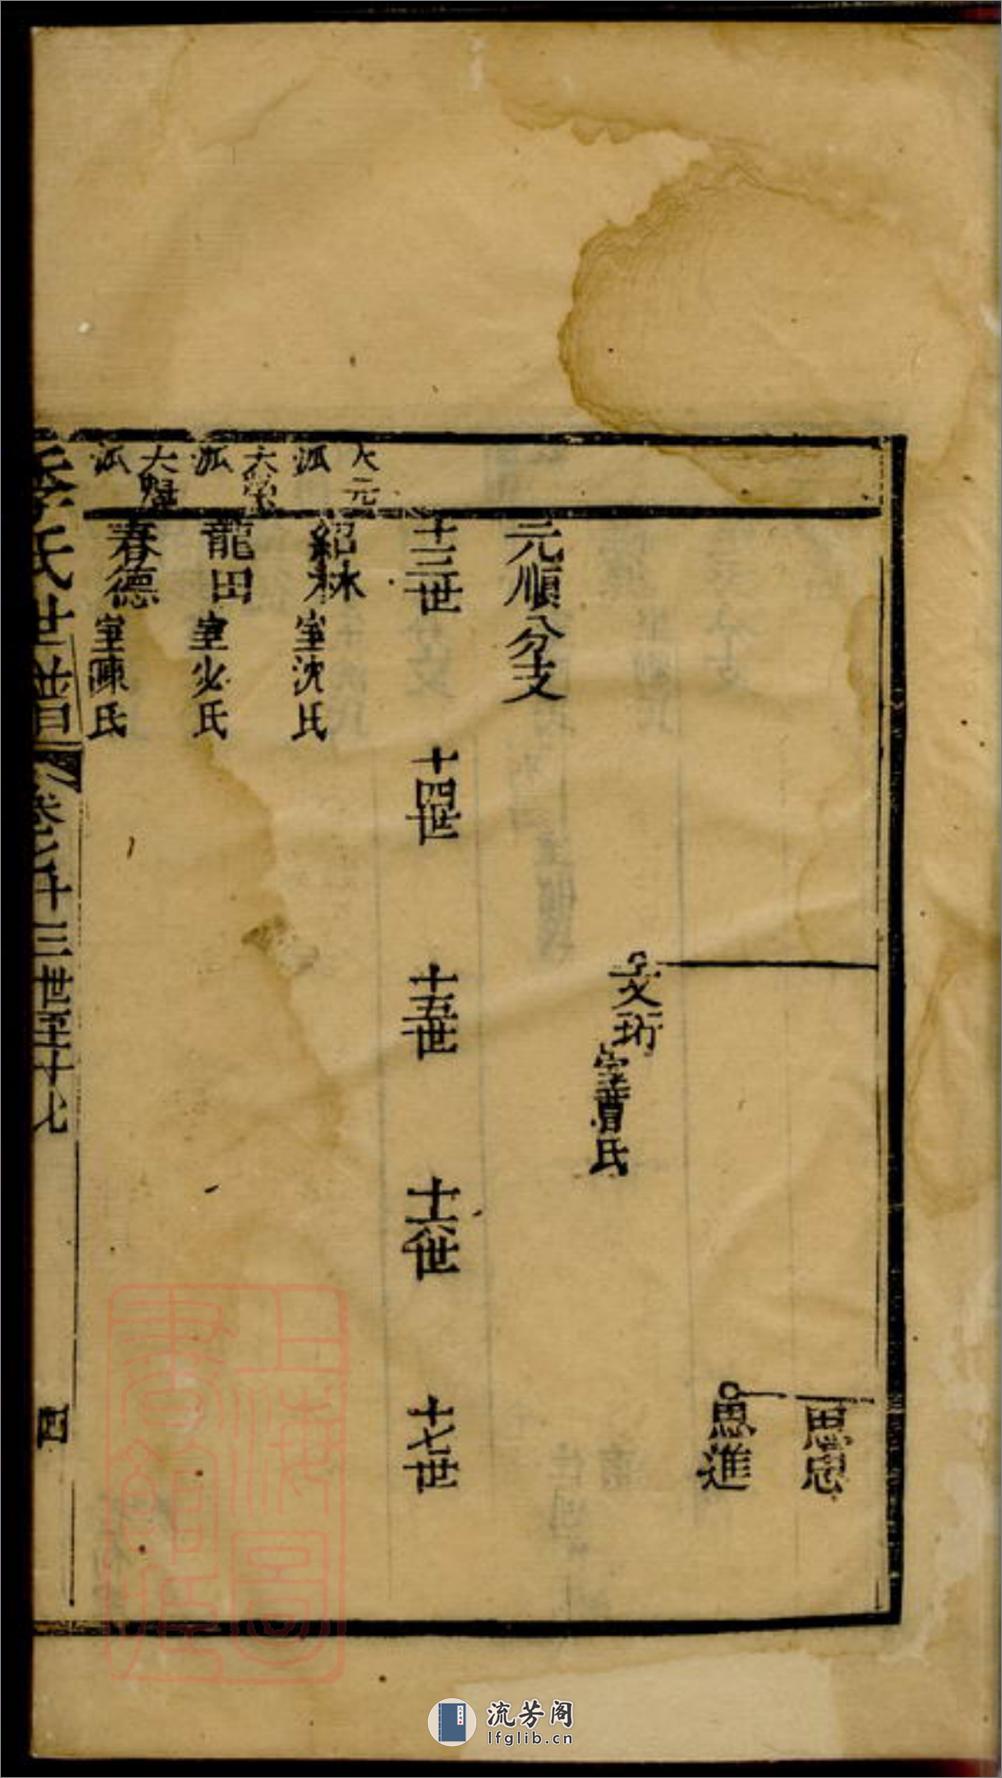 思忠
思進
文珩
室曹氏
元順分支
十三世
十四世
十五世
十六世
十七世
大元
派
紹林
室沈氏
大榮
派
龍田
室必氏
大魁
派
春德
室陳氏
李氏世譜
卷 十三世至十七
四
上海圖
書館藏
流芳阁
lfglib.cn